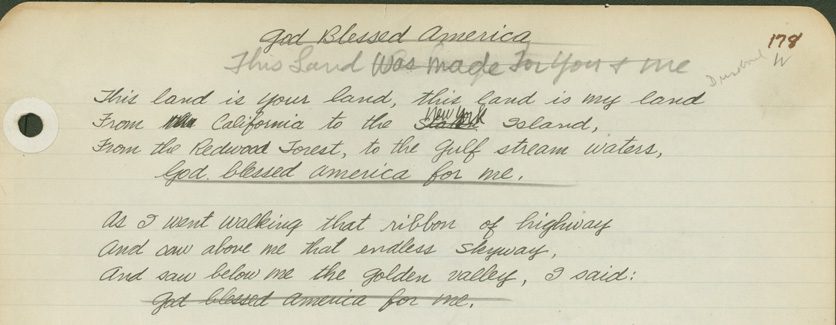 God Blessed America
This Land Was Made For You & me
178
W
This land is your land, this land is my land
From the California to the Staten New York Island,
From the Redwood Forest, to the Gulf stream waters,
God blessed america for me.
As I went walking that ribbon of highway
And saw above me that endless skyway,
And saw below me the golden valley, I said:
God blessed america for me.